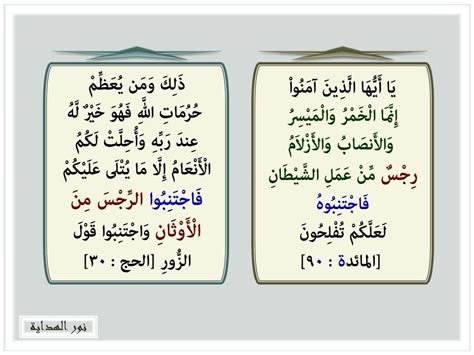 يَا أَيُّهَا الَّذِينَ آمَنُواْ
إِنَّمَا الْخَمْرُ وَالْمَيْسِرُ
وَالأَنصَابُ وَالأَزْلاَمُ
رِجْسٌ مِّنْ عَمَلِ الشَّيْطَانِ
فَاجْتَنِبُوهُ
لَعَلَّكُمْ تُفْلِحُونَ
[المائدة : ٩٠]
ذَلِكَ وَمَن يُعَظِّمْ
حُرُمَاتِ اللَّهِ فَهُوَ خَيْرٌ لَّهُ
عِندَ رَبِّهِ وَأُحِلَّتْ لَكُمُ
الْأَنْعَامُ إِلَّا مَا يُتْلَى عَلَيْكُمْ
فَاجْتَنِبُوا الرِّجْسَ مِنَ
الْأَوْثَانِ وَاجْتَنِبُوا قَوْلَ
الزُّورِ [الحج : ٣٠]
نور الهداية